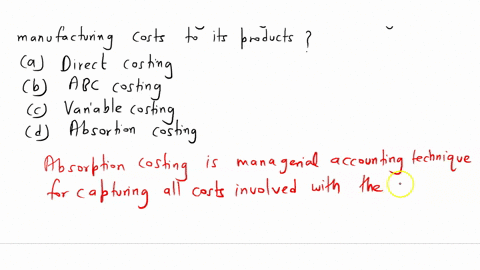 manufacturing costs to its products ?
(a) Direct costing
(b) ABC costing
(c) Variable costing
(d) Absortion costing
Absorption costing is managerial accounting technique
for capturing all costs involved with the